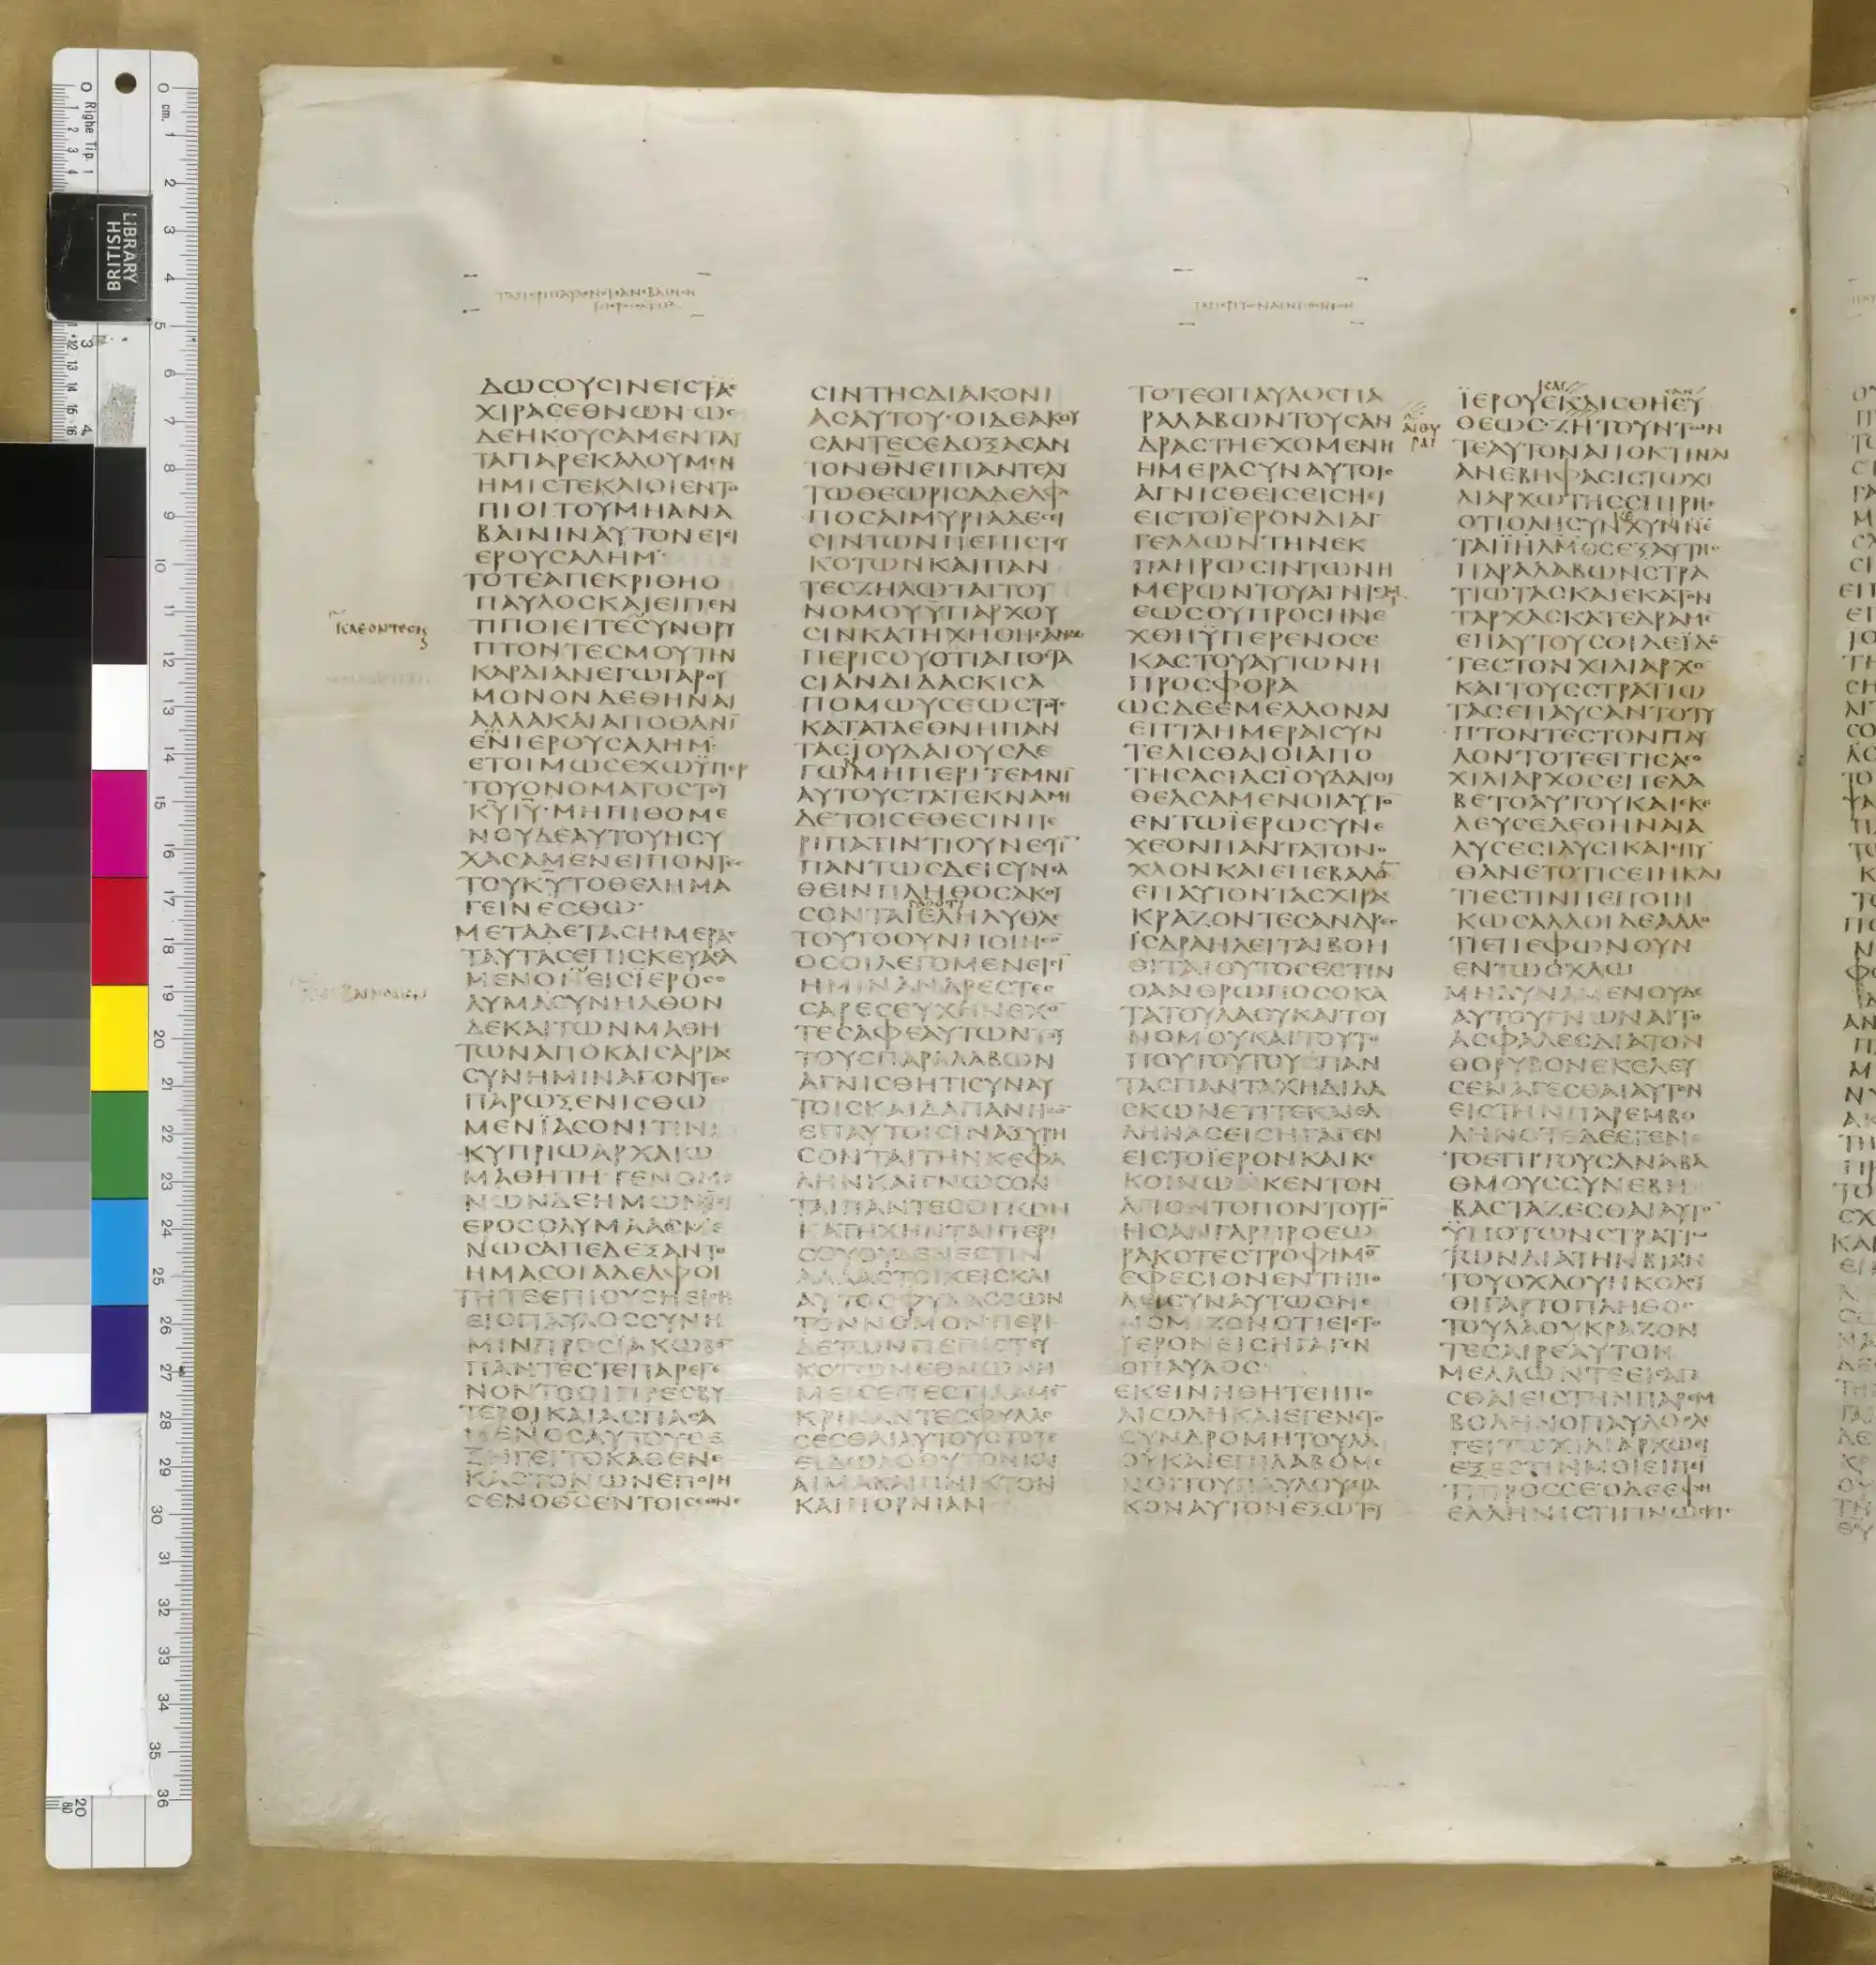 ΔΩCΟΥCΙΝΕΙC
ΧΙΡΑCΕΘΝΩΝΩC
ΔΕΗΚΟΥCΑΜΕΝΤΑΥ
ΤΑΠΑΡΕΚΑΛΟΥΜΕΝ
ΗΜΙCΤΕΚΑΙΟΙΕΝΤΟ
ΠΙΟΙΤΟΥΜΗΑΝΑ
ΒΑΙΝΙΝΑΥΤΟΝΕΙCΙ
ΕΡΟΥCΑΛΗΜ
ΤΟΤΕΑΠΕΚΡΙΘΗΟ
ΠΑΥΛΟCΚΑΙΕΙΠΕΝ
ΤΙΠΟΙΕΙΤΕCΥΝΘΡΥ
ΠΤΟΝΤΕCΜΟΥΤΗΝ
ΚΑΡΔΙΑΝΕΓΩΓΑΡΟΥ
ΜΟΝΟΝΔΕΘΗΝΑΙ
ΑΛΛΑΚΑΙΑΠΟΘΑΝΙ
ΕΝΙΕΡΟΥCΑΛΗΜ
ΕΤΟΙΜΩCΕΧΩΫΠΕΡ
ΤΟΥΟΝΟΜΑΤΟCΤΟΥ
ΚΥΙΥ·ΜΗΠΙΘΟΜΕ
ΝΟΥΔΕΑΥΤΟΥΗCΥ
ΧΑCΑΜΕΝΕΙΠΟΝΤΕC
ΤΟΥΚΥΤΟΘΕΛΗΜΑ
ΓΕΙΝΕCΘΩ
ΜΕΤΑΔΕΤΑCΗΜΕΡΑC
ΤΑΥΤΑCΕΠΙCΚΕΥΑCΑ
ΜΕΝΟΙ ΕΙCΪΕΡΟCΟ
ΛΥΜΑCΥΝΗΛΘΟΝ
ΔΕΚΑΙΤΩΝΜΑΘΗ
ΤΩΝΑΠΟΚΑΙCΑΡΙΑC
CΥΝΗΜΙΝΑΓΟΝΤΕC
ΠΑΡΩΞΕΝΙCΘΩ
ΜΕΝΪΑCΟΝΙΤΙΝΙ
ΚΥΠΡΙΩΑΡΧΑΙΩ
ΜΑΘΗΤΗΓΕΝΟΜΕ
ΝΩΝΔΕΗΜΩΝ
ΕΡΟCΟΛΥΜΑΑCΜΕ
ΝΩCΑΠΕΔΕΞΑΝΤΟ
ΗΜΑCΟΙΑΔΕΛΦΟΙ
ΤΗΤΕΕΠΙΟΥCΗΕΙCΗ
ΕΙΟΠΑΥΛΟCCΥΝΗ
ΜΙΝΠΡΟCΪΑΚΩΒΟΝ
ΠΑΝΤΕCΤΕΠΑΡΕΓΕ
ΝΟΝΤΟΟΙΠΡΕCΒΥ
ΤΕΡΟΙΚΑΙΑCΠΑCΑ
ΜΕΝΟCΑΥΤΟΥCΕ
ΞΗΓΕΙΤΟΚΑΘΕΝΕ
ΚΑCΤΟΝΩΝΕΠΟΙΗ
CΕΝΟΘCΕΝΤΟΙCΕΘΝΕ
CΙΝΤΗCΔΙΑΚΟΝΙ
ΑCΑΥΤΟΥ·ΟΙΔΕΑΚΟΥ
CΑΝΤΕCΕΔΟΞΑCΑΝ
ΤΟΝΘΝΕΙΠΑΝΤΕΑΥ
ΤΩΘΕΩΡΙCΑΔΕΛΦΕ
ΠΟCΑΙΜΥΡΙΑΔΕCΕΙ
CΙΝΤΩΝΠΕΠΙCΤΕΥ
ΚΟΤΩΝΚΑΙΠΑΝ
ΤΕCΖΗΛΩΤΑΙΤΟΥ
ΝΟΜΟΥΫΠΑΡΧΟΥ
CΙΝΚΑΤΗΧΗΘΗCΑΝΔΕ
ΠΕΡΙCΟΥΟΤΙΑΠΟCΤΑ
CΙΑΝΔΙΔΑCΚΙCΑ
ΠΟΜΩΥCΕΩCΤΟΥC
ΚΑΤΑΤΑΕΘΝΗΠΑΝ
ΤΑCΪΟΥΔΑΙΟΥCΛΕ
ΓΩΜΗΠΕΡΙΤΕΜΝΙ
ΑΥΤΟΥCΤΑΤΕΚΝΑΜΗ
ΔΕΤΟΙCΕΘΕCΙΝΠΕ
ΡΙΠΑΤΙΝΤΙΟΥΝΕCΤΙ
ΠΑΝΤΩCΔΕΙCΥΝΕΛ
ΘΕΙΝΠΛΗΘΟCΑΚΟΥ
CΟΝΤΑΙΕΛΗΛΥΘΑC
ΤΟΥΤΟΟΥΝΠΟΙΗCΟΝ
ΟCΟΙΛΕΓΟΜΕΝΕΙCΙ
ΗΜΙΝΑΝΔΡΕCΤΕC
CΑΡΕCΕΥΧΗΝΕΧΟ
ΤΕCΑΦΕΑΥΤΩΝΤΟΥ
ΤΟΥCΠΑΡΑΛΑΒΩΝ
ΑΓΝΙCΘΗΤΙCΥΝΑΥ
ΤΟΙCΚΑΙΔΑΠΑΝΗCΟΝ
ΕΠΑΥΤΟΙCΙΝΑΞΥΡΗ
CΟΝΤΑΙΤΗΝΚΕΦΑ
ΛΗΝΚΑΙΓΝΩCΟΝ
ΤΑΙΠΑΝΤΕCΟΤΙΩΝ
ΚΑΤΗΧΗΝΤΑΙΠΕΡΙ
CΟΥΟΥΔΕΝΕCΤΙΝ
ΑΛΛΑCΤΟΙΧΕΙCΚΑΙ
ΑΥΤΟCΦΥΛΑCCΩΝ
ΤΟΝΝΟΜΟΝΠΕΡΙ
ΔΕΤΩΝΠΕΠΙCΤΕΥ
ΚΟΤΩΝΕΘΝΩΝΗ
ΜΕΙCΕΠΕCΤΙΛΑΜΕ
ΚΡΙΝΑΝΤΕCΦΥΛΑC
CΕCΘΑΙΑΥΤΟΥCΤΟΤΕ
ΕΙΔΩΛΟΘΥΤΟΝΚΑΙ
ΑΙΜΑΚΑΙΠΝΙΚΤΟΝ
ΚΑΙΠΟΡΝΙΑΝ
ΤΟΤΕΟΠΑΥΛΟCΠΑ
ΡΑΛΑΒΩΝΤΟΥCΑΝ
ΔΡΑCΤΗΕΧΟΜΕΝΗ
ΗΜΕΡΑCΥΝΑΥΤΟΙC
ΑΓΝΙCΘΕΙCΕΙCΗΕΙ
ΕΙCΤΟΪΕΡΟΝΔΙΑΓ
ΓΕΛΛΩΝΤΗΝΕΚ
ΠΛΗΡΩCΙΝΤΩΝΗ
ΜΕΡΩΝΤΟΥΑΓΝΙCΜ
ΕΩCΟΥΠΡΟCΗΝΕ
ΧΘΗΫΠΕΡΕΝΟCΕ
ΚΑCΤΟΥΑΥΤΩΝΗ
ΠΡΟCΦΟΡΑ
ΩCΔΕΕΜΕΛΛΟΝΑΙ
ΕΠΤΑΗΜΕΡΑΙCΥΝ
ΤΕΛΙCΘΑΙΟΙΑΠΟ
ΤΗCΑCΙΑCΪΟΥΔΑΙΟΙ
ΘΕΑCΑΜΕΝΟΙΑΥΤΟ
ΕΝΤΩΪΕΡΩCΥΝΕ
ΧΕΟΝΠΑΝΤΑΤΟΝΟ
ΧΛΟΝΚΑΙΕΠΕΒΑΛΟ
ΕΠΑΥΤΟΝΤΑCΧΙΡΑC
ΚΡΑΖΟΝΤΕCΑΝΔΡΕC
ΪCΔΡΑΗΛΕΙΤΑΙΒΟΗ
ΘΙΤΑΙΟΥΤΟCΕCΤΙΝ
ΟΑΝΘΡΩΠΟCΟΚΑ
ΤΑΤΟΥΛΑΟΥΚΑΙΤΟΥ
ΝΟΜΟΥΚΑΙΤΟΥΤΟ
ΠΟΥΤΟΥΤΟΥCΠΑΝ
ΤΑCΠΑΝΤΑΧΗΔΙΔΑ
CΚΩΝΕΤΙΤΕΚΑΙΕΛ
ΛΗΝΑCΕΙCΗΓΑΓΕΝ
ΕΙCΤΟΪΕΡΟΝΚΑΙΚΕ
ΚΟΙΝΩ ΚΕΝΤΟΝ
ΑΓΙΟΝΤΟΠΟΝΤΟΥΤΟ
ΗCΑΝΓΑΡΠΡΟΕΩ
ΡΑΚΟΤΕCΤΡΟΦΙΜΟ
ΕΦΕCΙΟΝΕΝΤΗΠΟ
ΛΕΙCΥΝΑΥΤΩΟΝΕ
ΝΟΜΙΖΟΝΟΤΙΕΙCΤΟ
ΪΕΡΟΝΕΙCΗΓΑΓΕΝ
ΟΠΑΥΛΟC
ΕΚΕΙΝΗΘΗΤΕΗΠΟ
ΛΙCΟΛΗΚΑΙΕΓΕΝΕΤΟ
CΥΝΔΡΟΜΗΤΟΥΛΑ
ΟΥΚΑΙΕΠΙΛΑΒΟΜΕ
ΝΟΙΤΟΥΠΑΥΛΟΥΕΙΛ
ΚΟΝΑΥΤΟΝΕΞΩΤΟΥ
ΪΕΡΟΥΕΚΑΙCΘΗΕΥ
ΘΕΩC·ΖΗΤΟΥΝΤΩΝ
ΤΕΑΥΤΟΝΑΠΟΚΤΙΝΑΙ
ΑΝΕΒΗΦΑCΙCΤΩΧΙ
ΛΙΑΡΧΩΤΗCCΠΙΡΗC
ΟΤΙΟΛΗCΥΝΧΥΝΝΕ
ΤΑΙΪΗΛΜΟCΕΞΑΥΤΗC
ΠΑΡΑΛΑΒΩΝCΤΡΑ
ΤΙΩΤΑCΚΑΙΕΚΑΤΟΝ
ΤΑΡΧΑCΚΑΤΕΔΡΑΜΕ
ΕΠΑΥΤΟΥCΟΙΔΕΪΔΟ
ΤΕCΤΟΝΧΙΛΙΑΡΧΟ
ΚΑΙΤΟΥCCΤΡΑΤΙΩ
ΤΑCΕΠΑΥCΑΝΤΟΤΥ
ΠΤΟΝΤΕCΤΟΝΠΑΥ
ΛΟΝΤΟΤΕΕΓΓΙCΑC
ΧΙΛΙΑΡΧΟCΕΠΕΛΑ
ΒΕΤΟΑΥΤΟΥΚΑΙΕΚΕ
ΛΕΥCΕΔΕΘΗΝΑΙΑ
ΛΥCΕCΙΔΥCΙΚΑΙΕΠΥ
ΘΑΝΕΤΟΤΙCΕΙΗΚΑΙ
ΤΙΕCΤΙΝΠΕΠΟΙΗ
ΚΩCΑΛΛΟΙΔΕΑΛΛΟ
ΤΙΕΠΕΦΩΝΟΥΝ
ΕΝΤΩΟΧΛΩ
ΜΗΔΥΝΑΜΕΝΟΥΔΕ
ΑΥΤΟΥΓΝΩΝΑΙΤΟ
ΑCΦΑΛΕCΔΙΑΤΟΝ
ΘΟΡΥΒΟΝΕΚΕΛΕΥ
CΕΝΑΓΕCΘΑΙΑΥΤΟΝ
ΕΙCΤΗΝΠΑΡΕΜΒΟ
ΛΗΝΟΤΕΔΕΕΓΕΝΕ
ΤΟΕΠΙΤΟΥCΑΝΑΒΑ
ΘΜΟΥCCΥΝΕΒΗ
ΒΑCΤΑΖΕCΘΑΙΑΥΤΟ
ΫΠΟΤΩΝCΤΡΑΤΙΩ
ΤΩΝΔΙΑΤΗΝΒΙΑΝ
ΤΟΥΟΧΛΟΥΗΚΟΛΟΥ
ΘΙΓΑΡΤΟΠΛΗΘΟC
ΤΟΥΛΑΟΥΚΡΑΖΟΝ
ΤΕCΑΙΡΕΑΥΤΟΝ
ΜΕΛΛΩΝΤΕΕΙCΑΓΕ
CΘΑΙΕΙCΤΗΝΠΑΡΕΜ
ΒΟΛΗΝΟΠΑΥΛΟCΛΕ
ΓΕΙΤΩΧΙΛΙΑΡΧΩΕΙ
ΕΞΕCΤΙΝΜΟΙΕΙΠΕΙ
ΤΙΠΡΟCCΕΟΔΕΕΦΗ
ΕΛΛΗΝΙCΤΙΓΙΝΩCΚΙC